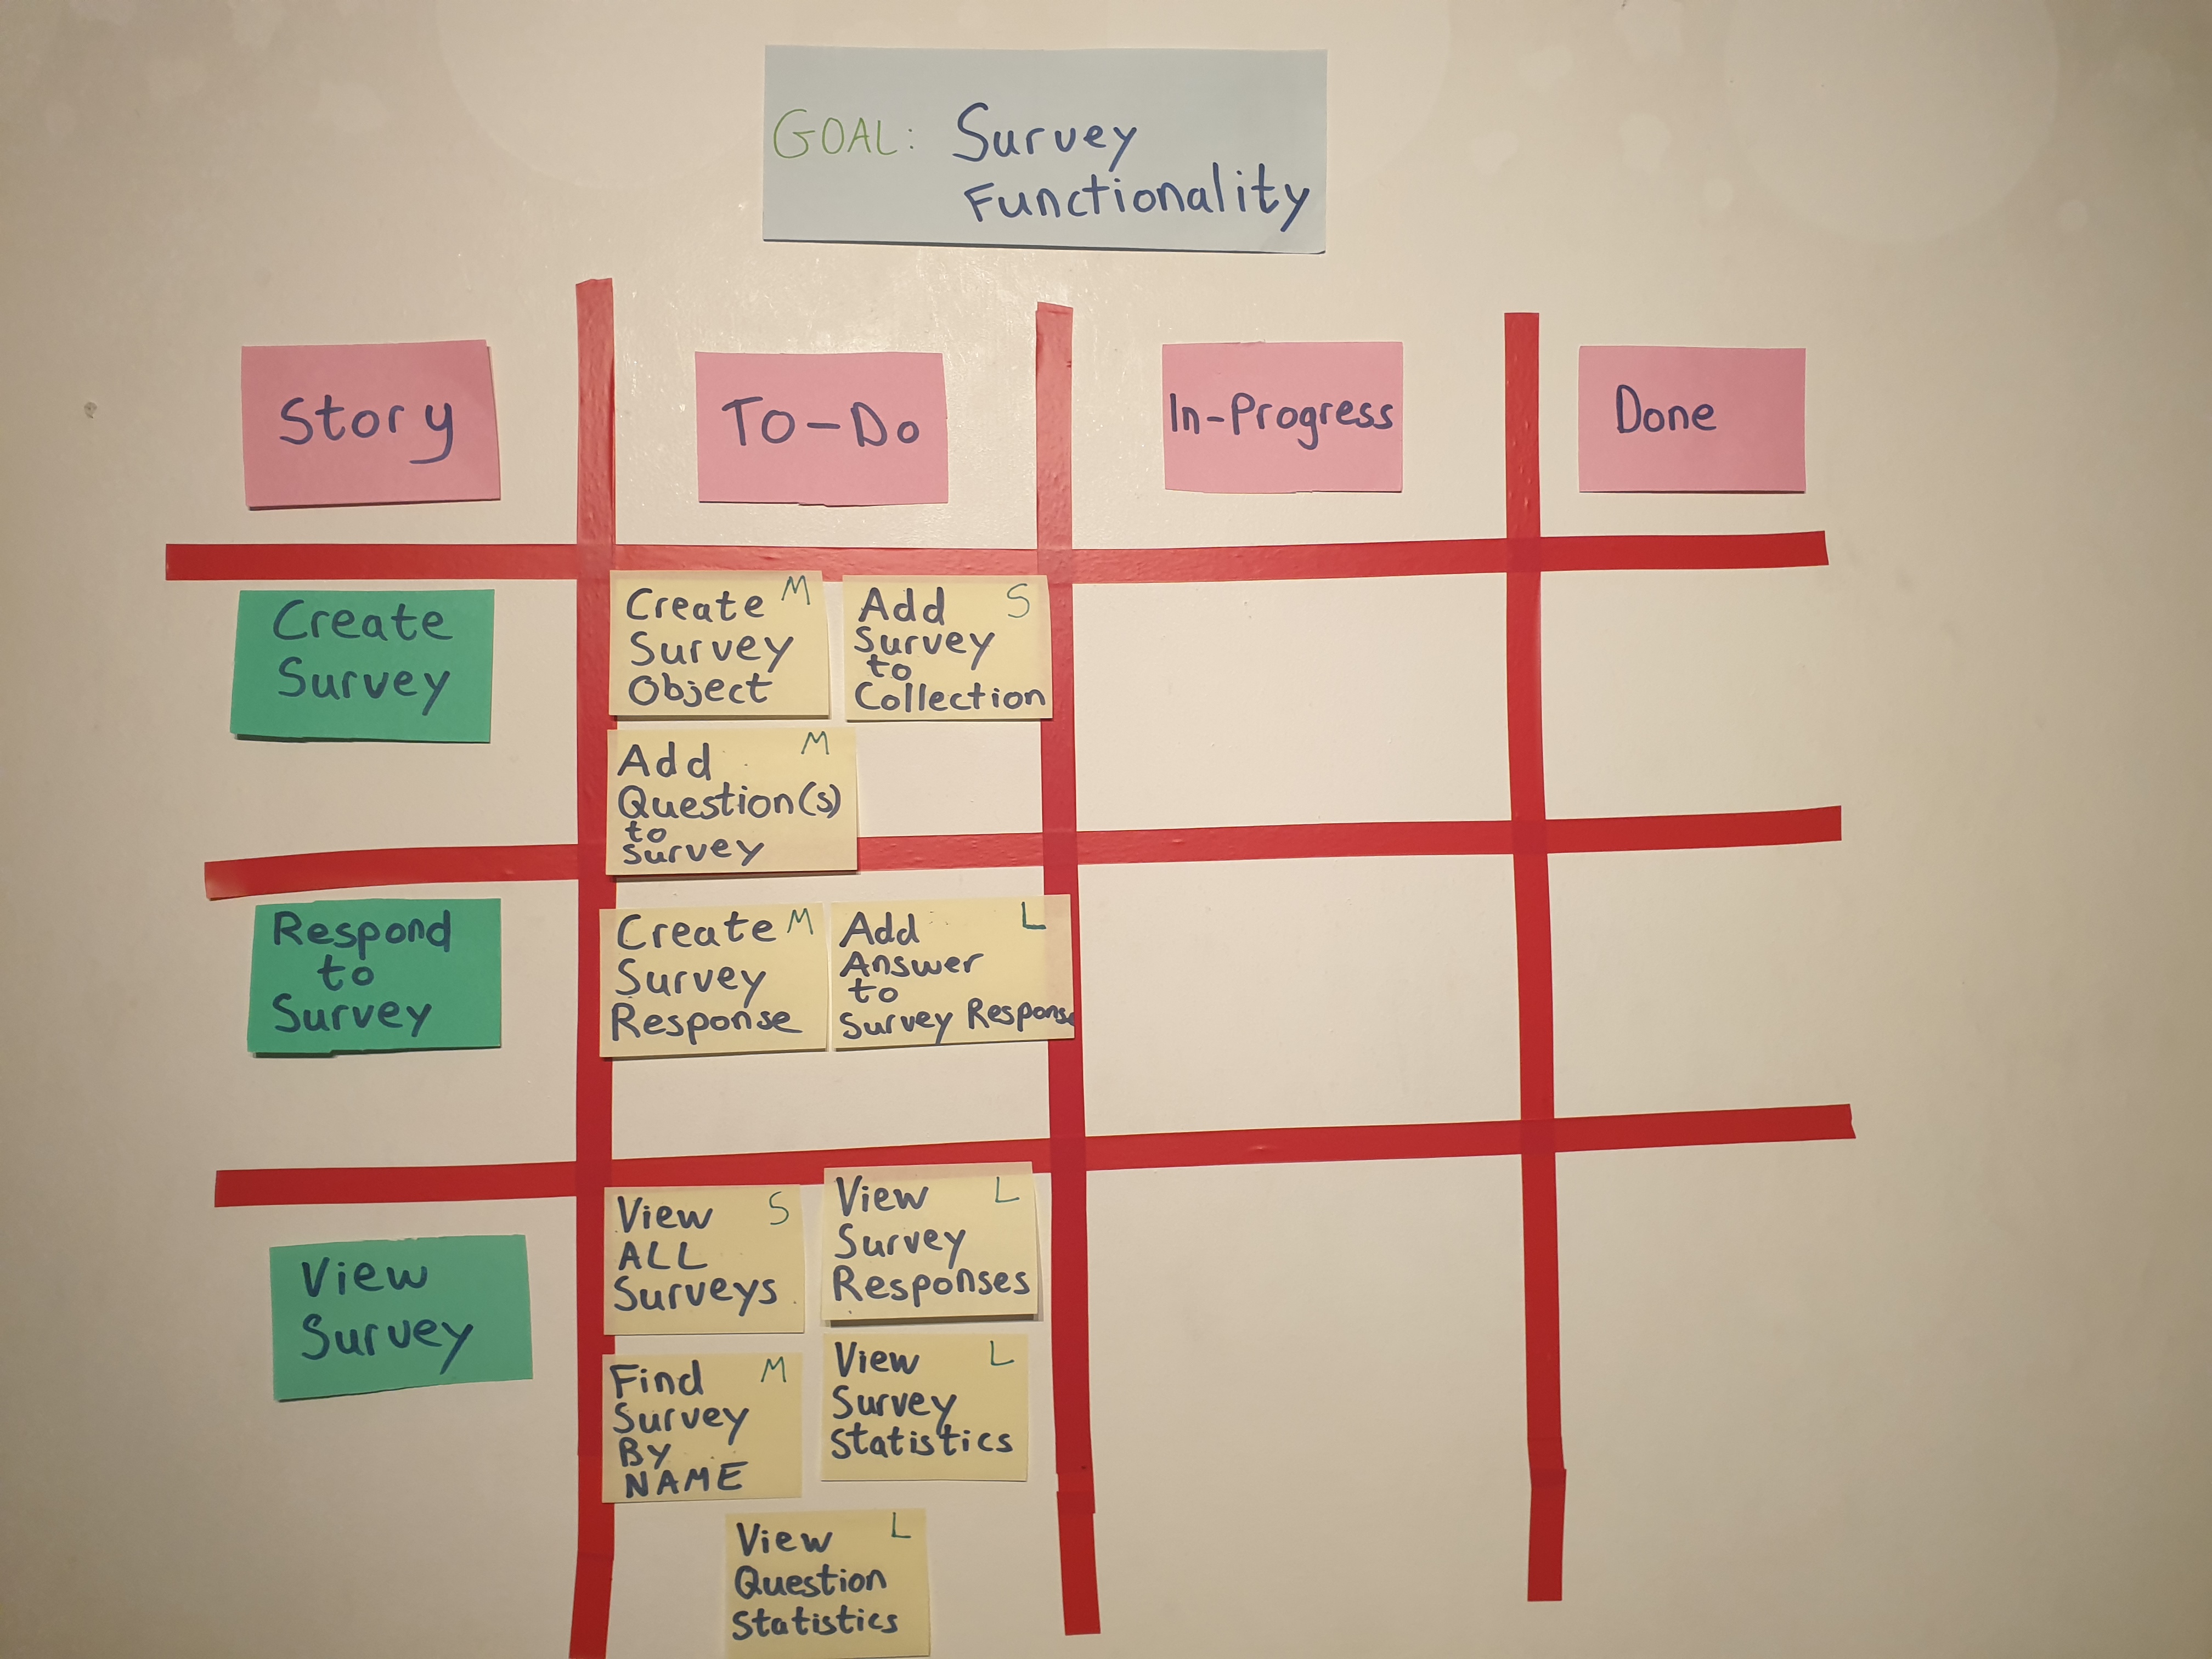 GOAL: Survey
Functionality
Story
To-Do
In-Progress
Done
Create
Survey
Create M
Survey
Object
Add S
Survey
to
Collection
Add M
Question(s)
to
Survey
Respond
to
Survey
Create M
Survey
Response
Add L
Answer
to
Survey Response
View
Survey
View S
ALL
Surveys
View L
Survey
Responses
Find M
Survey
By
NAME
View L
Survey
Statistics
View L
Question
Statistics